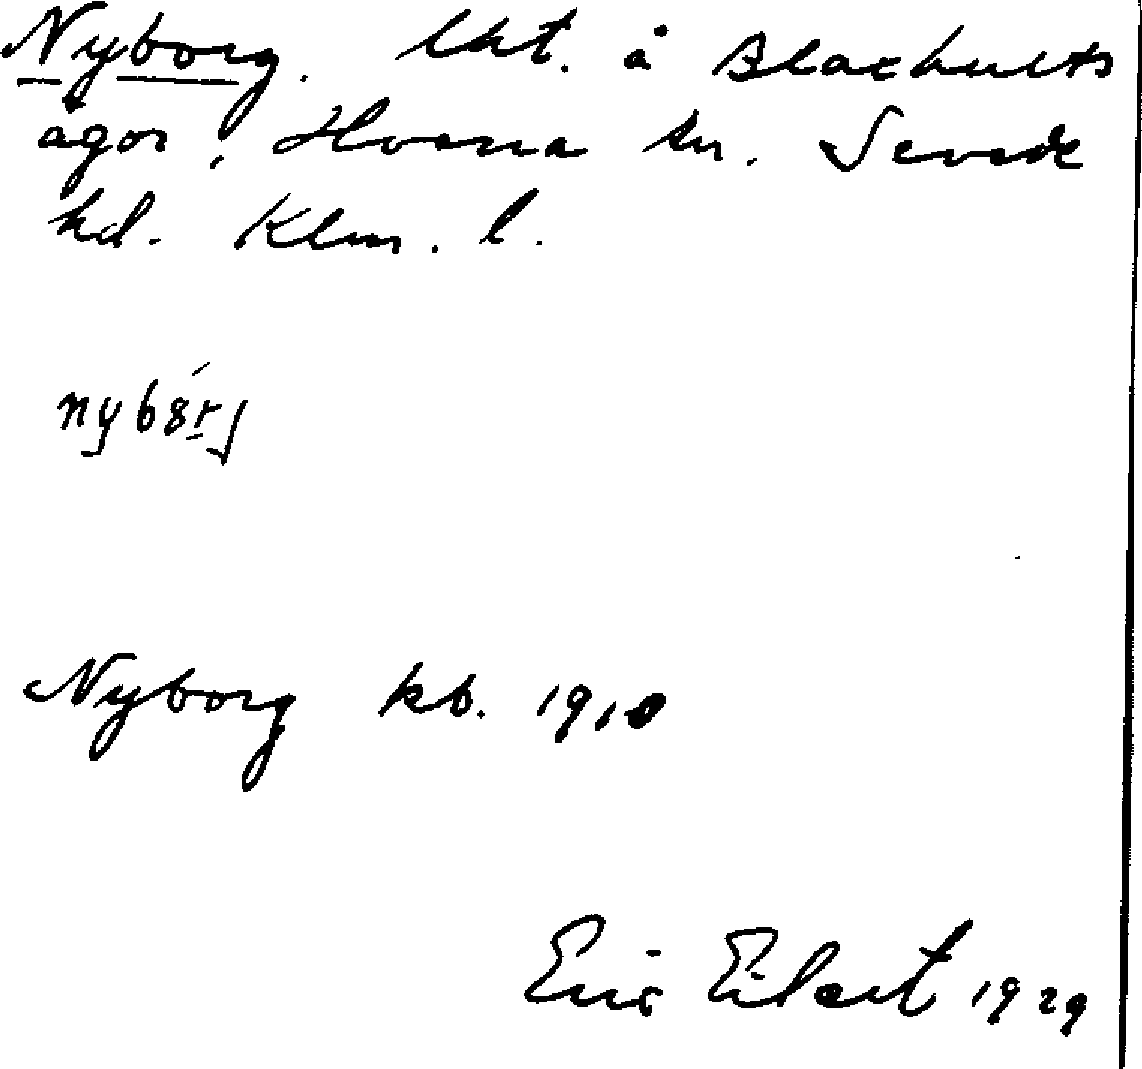 Nyborg. lht. å Blaxhults
ägor, Hvena sn. Sevede
hd. Klm. l.
Nyborg kb. 1910
Eric Eilert 1929